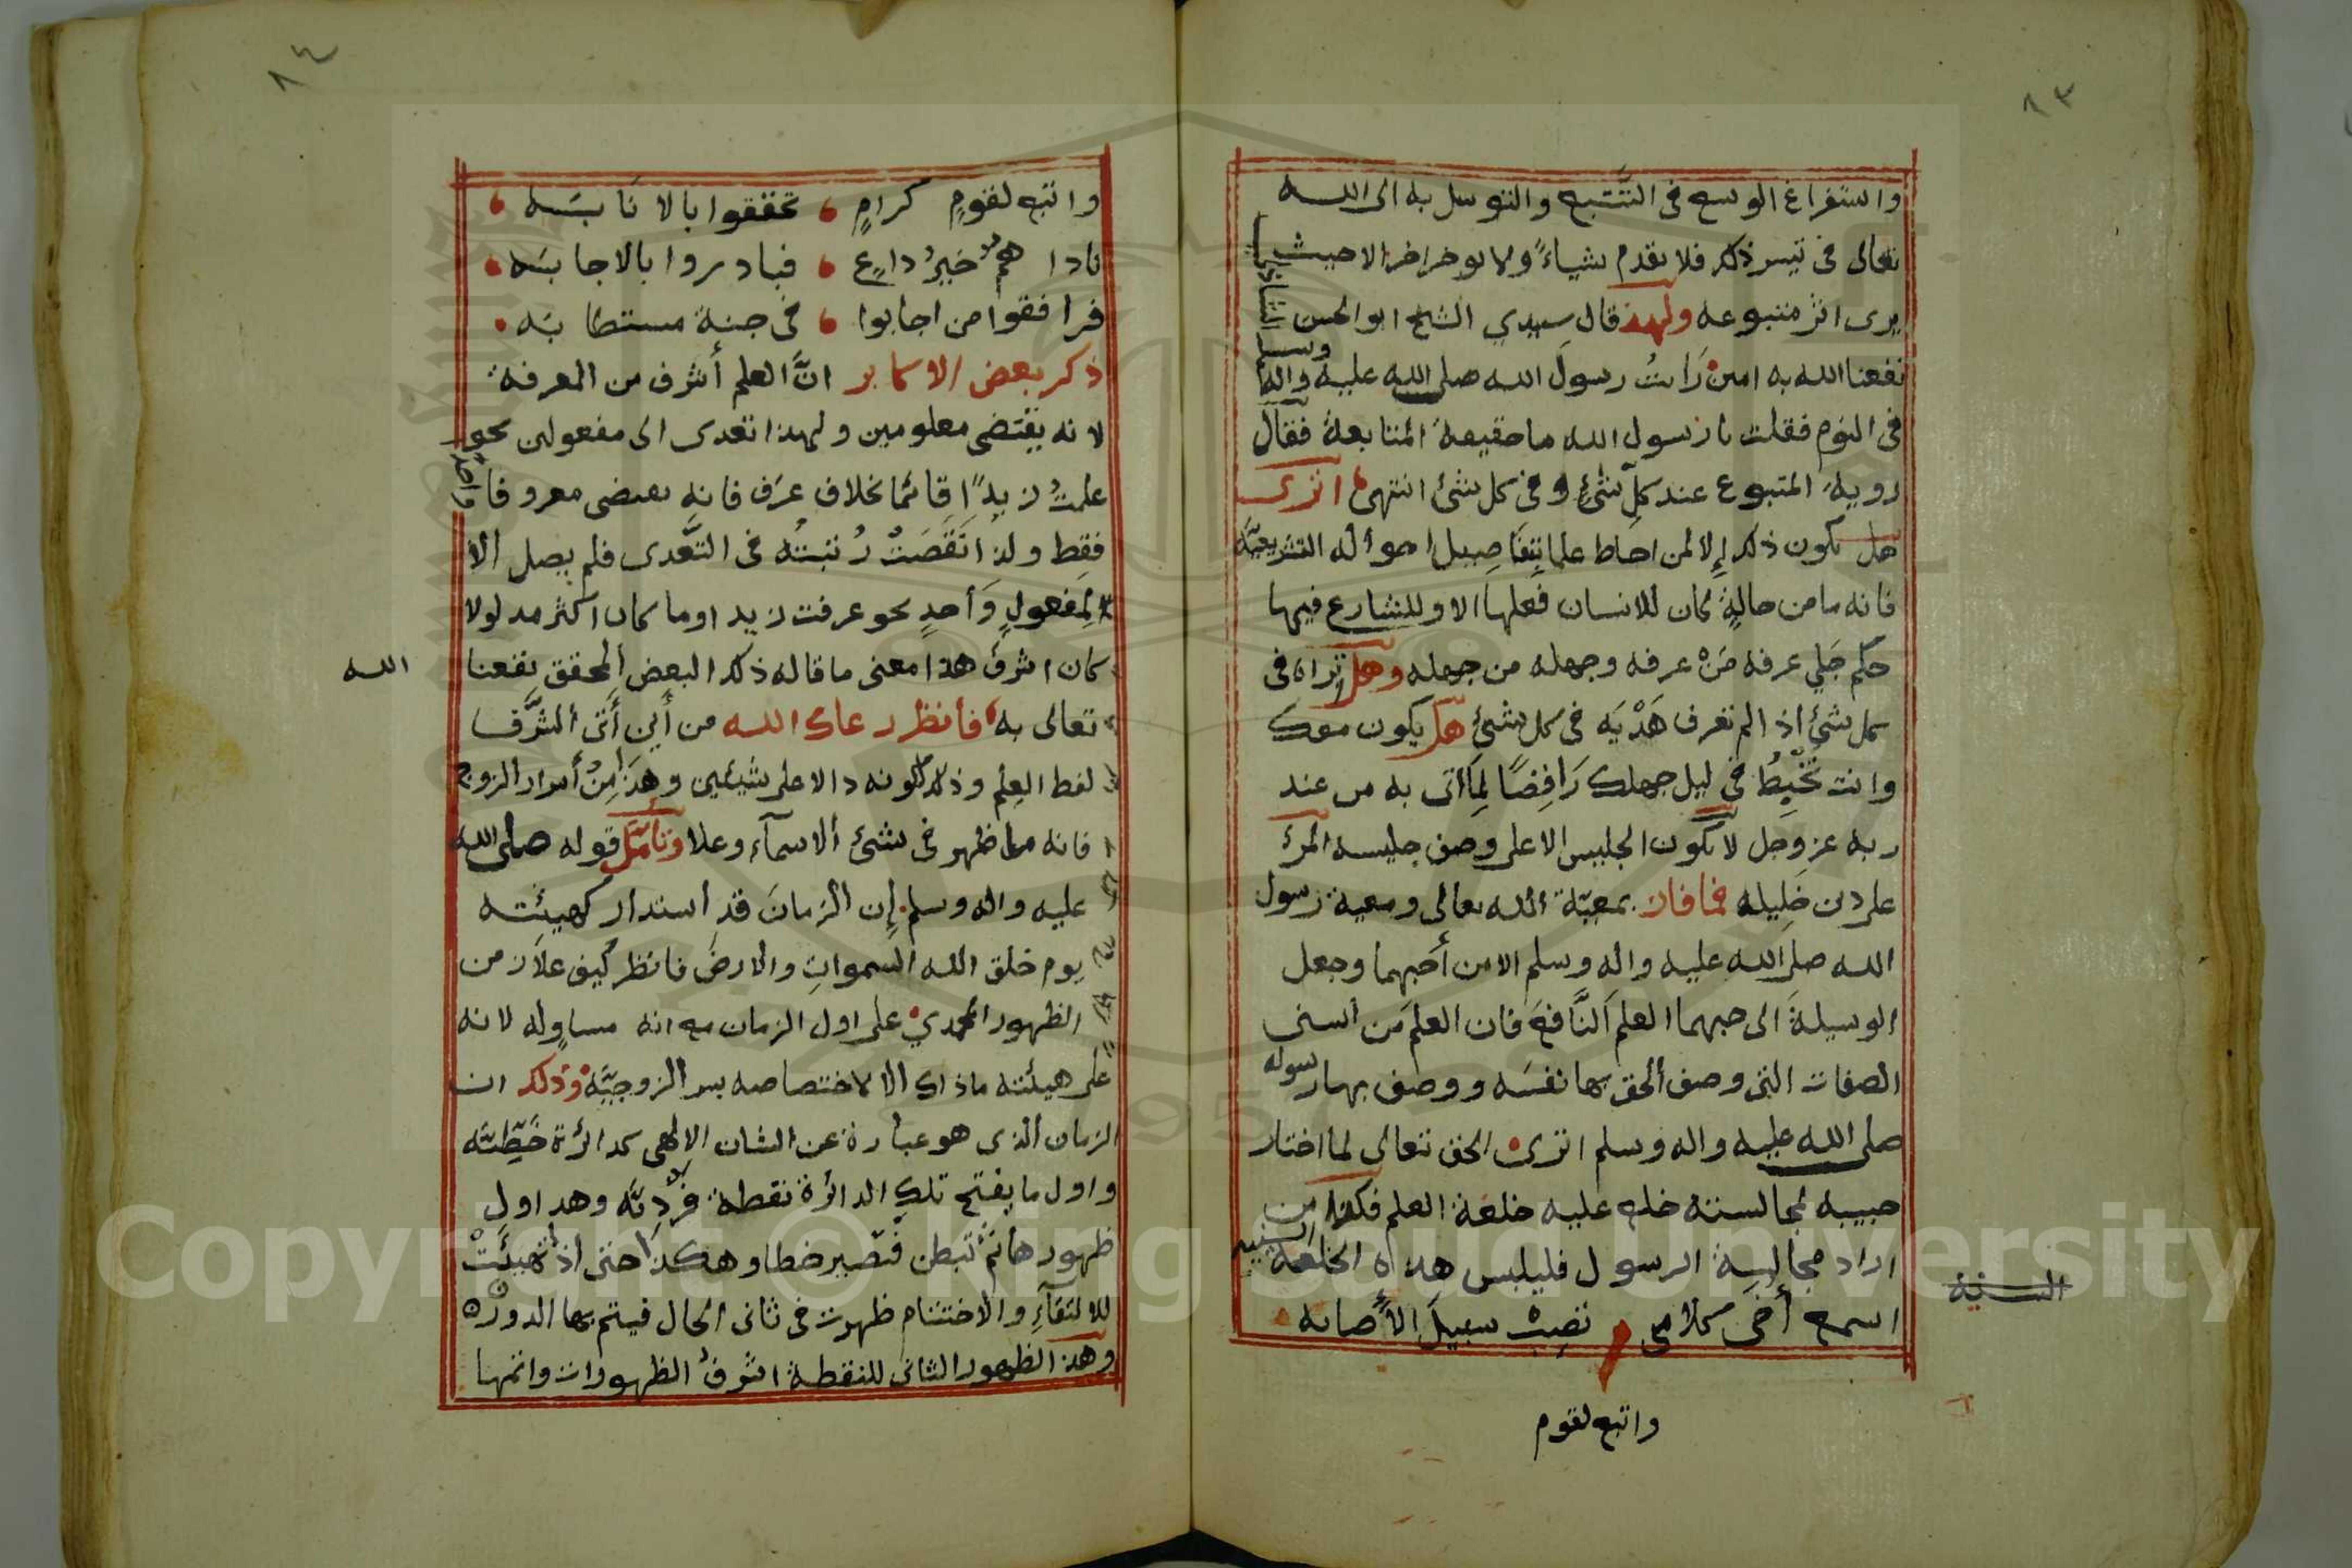 ٨٣
واستفراغ الوسع فى التَّتبع والتوسل به الى الله
تعالى فى تيسر ذلك فلا يقدم شياءً ولا يوخر اخر الا حيث
يرى اثر متبوعه ولهذا قال سيدي الشيخ ابو الحسن الشاذلى
نفعنا الله به امين رَايتُ رسول الله صلى الله عليه واله وسلم
فى النوم فقلت يا رسول الله ما حقيقة المتابعة فقال
روية المتبوع عند كل شئ وفى كل شئ انتهى اترى
هل يكون ذلك إلا لمن احاط علما بتفاصيل احواله التشريعيَّة
فانه ما من حالةٍ كان للانسان فعلها الا وللشارع فيها
حكم جَلي عرفه مَنْ عرفه وجهله من جهله وهل تراه فى
كل شئ اذا لم تعرف هَدْيَه فى كل شئ هل يكون معك
وانت تخبِطُ فى ليل جهلك رَافِضًا لِمَا اتى به من عند
ربه عز وجل لا يكون الجليس الا على وصف جليسه المرئ
على دين خليله فما فاز بمعيّة الله تعالى ومعية رسول
الله صلى الله عليه واله وسلم الا من أحبهما وجعل
الوسيلةَ الى حبهما العلم النَّافع فان العلمَ من اسنى
الصفات التى وصف الحق بها نفسَه ووصف بها رسوله
صلى الله عليه واله وسلم اترى الحق تعالى لما اختار
حبيبه لمجالسته خلع عليه خلعة العلم فكذا من
اراد مجالسة الرسول فليلبس هذه الخلعة السنيه
السنية
اسمع أخى كلامى تصِبْ سبيلَ الأصابه
واتبع لقوم
٨٤
واتبع لقومٍ كرامٍ تحققوا بالانابَه
ناداهم خيرُ داعٍ فبادروا بالاجابَه
فرافقوا من اجابوا فى جنة مستطابَه
ذكر بعض الاكابر انَّ العلم أشرف من المعرفة
لانه يقتضى معلومين ولهذا تعدى الى مفعولين نحو
علمتُ زيدًا قائما بخلاف عرَف فانه يقتضى معروفا واحدًا
فقط ولذا نَقَصَتْ رُتبتُه فى التَّعدى فلم يصل الا
لِمفعولٍ وَأحدٍ نحو عرفت زيدا وما كان اكثر مدلولا
كان اشرفَ هذا معنى ما قاله ذلك البعض المحقق نفعنا الله
تعالى به فأنظر رعاك الله من أين أتى الشرَّف
لفظ العِلم وذلك لكونه دالا على شيئين وهذا مِنْ أسرار الزوج
فانه ما ظهر فى شئ ألا سمآء وعلا وتأمّل قوله صلى الله
عليه واله وسلم إن الزمانَ قد استدار كهيئَته
يوم خلق الله السمواتِ والارضَ فانظر كيف علاَ زمن
الظهور المحمدي على اول الزمان مع انه مساوٍ له لانه
على هيئته ماذاك الا لاختصاصه بسر الزوجيَّة وذلك ان
الزمان الذى هو عبارة عن الشان الالهى كدائرة خَطيّته
واول ما يفتح تلك الدائرة نقطة فردِيَّه وهذا اول
ظهورها ثم تبطن فتصير خطا وهكذا حتى اذا تهيئَتْ
للالتقآءِ والاختتام ظهرت فى ثانى الحال فيتم بها الدوره
وهذا الظهور الثانى للنقطة اشرفُ الظهورات واتمها
Copyright © King Saud University